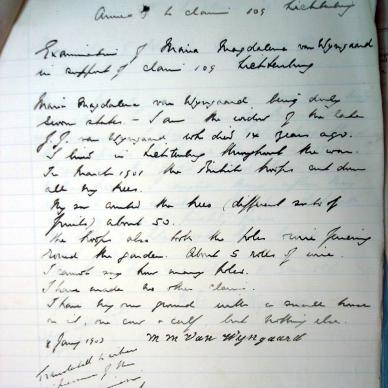 Annex to claim 109 Lichtenburg
Examination of Maria Magdalena van Wyngaard
in support of claim 109 Lichtenburg
Maria Magdalena van Wyngaard being duly
sworn states - I am the widow of the late
J.J. van Wyngaard who died 14 years ago.
I lived in Lichtenburg throughout the war.
In March 1901 the British troops cut down
all my trees.
My son counted the trees (different sorts of
fruits) about 50.
The troops also took the poles wire fencing
round the garden. About 5 rolls of wire.
I cannot say how many poles.
I have made no other claim.
I have my own ground with a small house
on it, one cow & calf but nothing else.
8 Jany 1903 M M Van Wyngaard
Translated to
of the